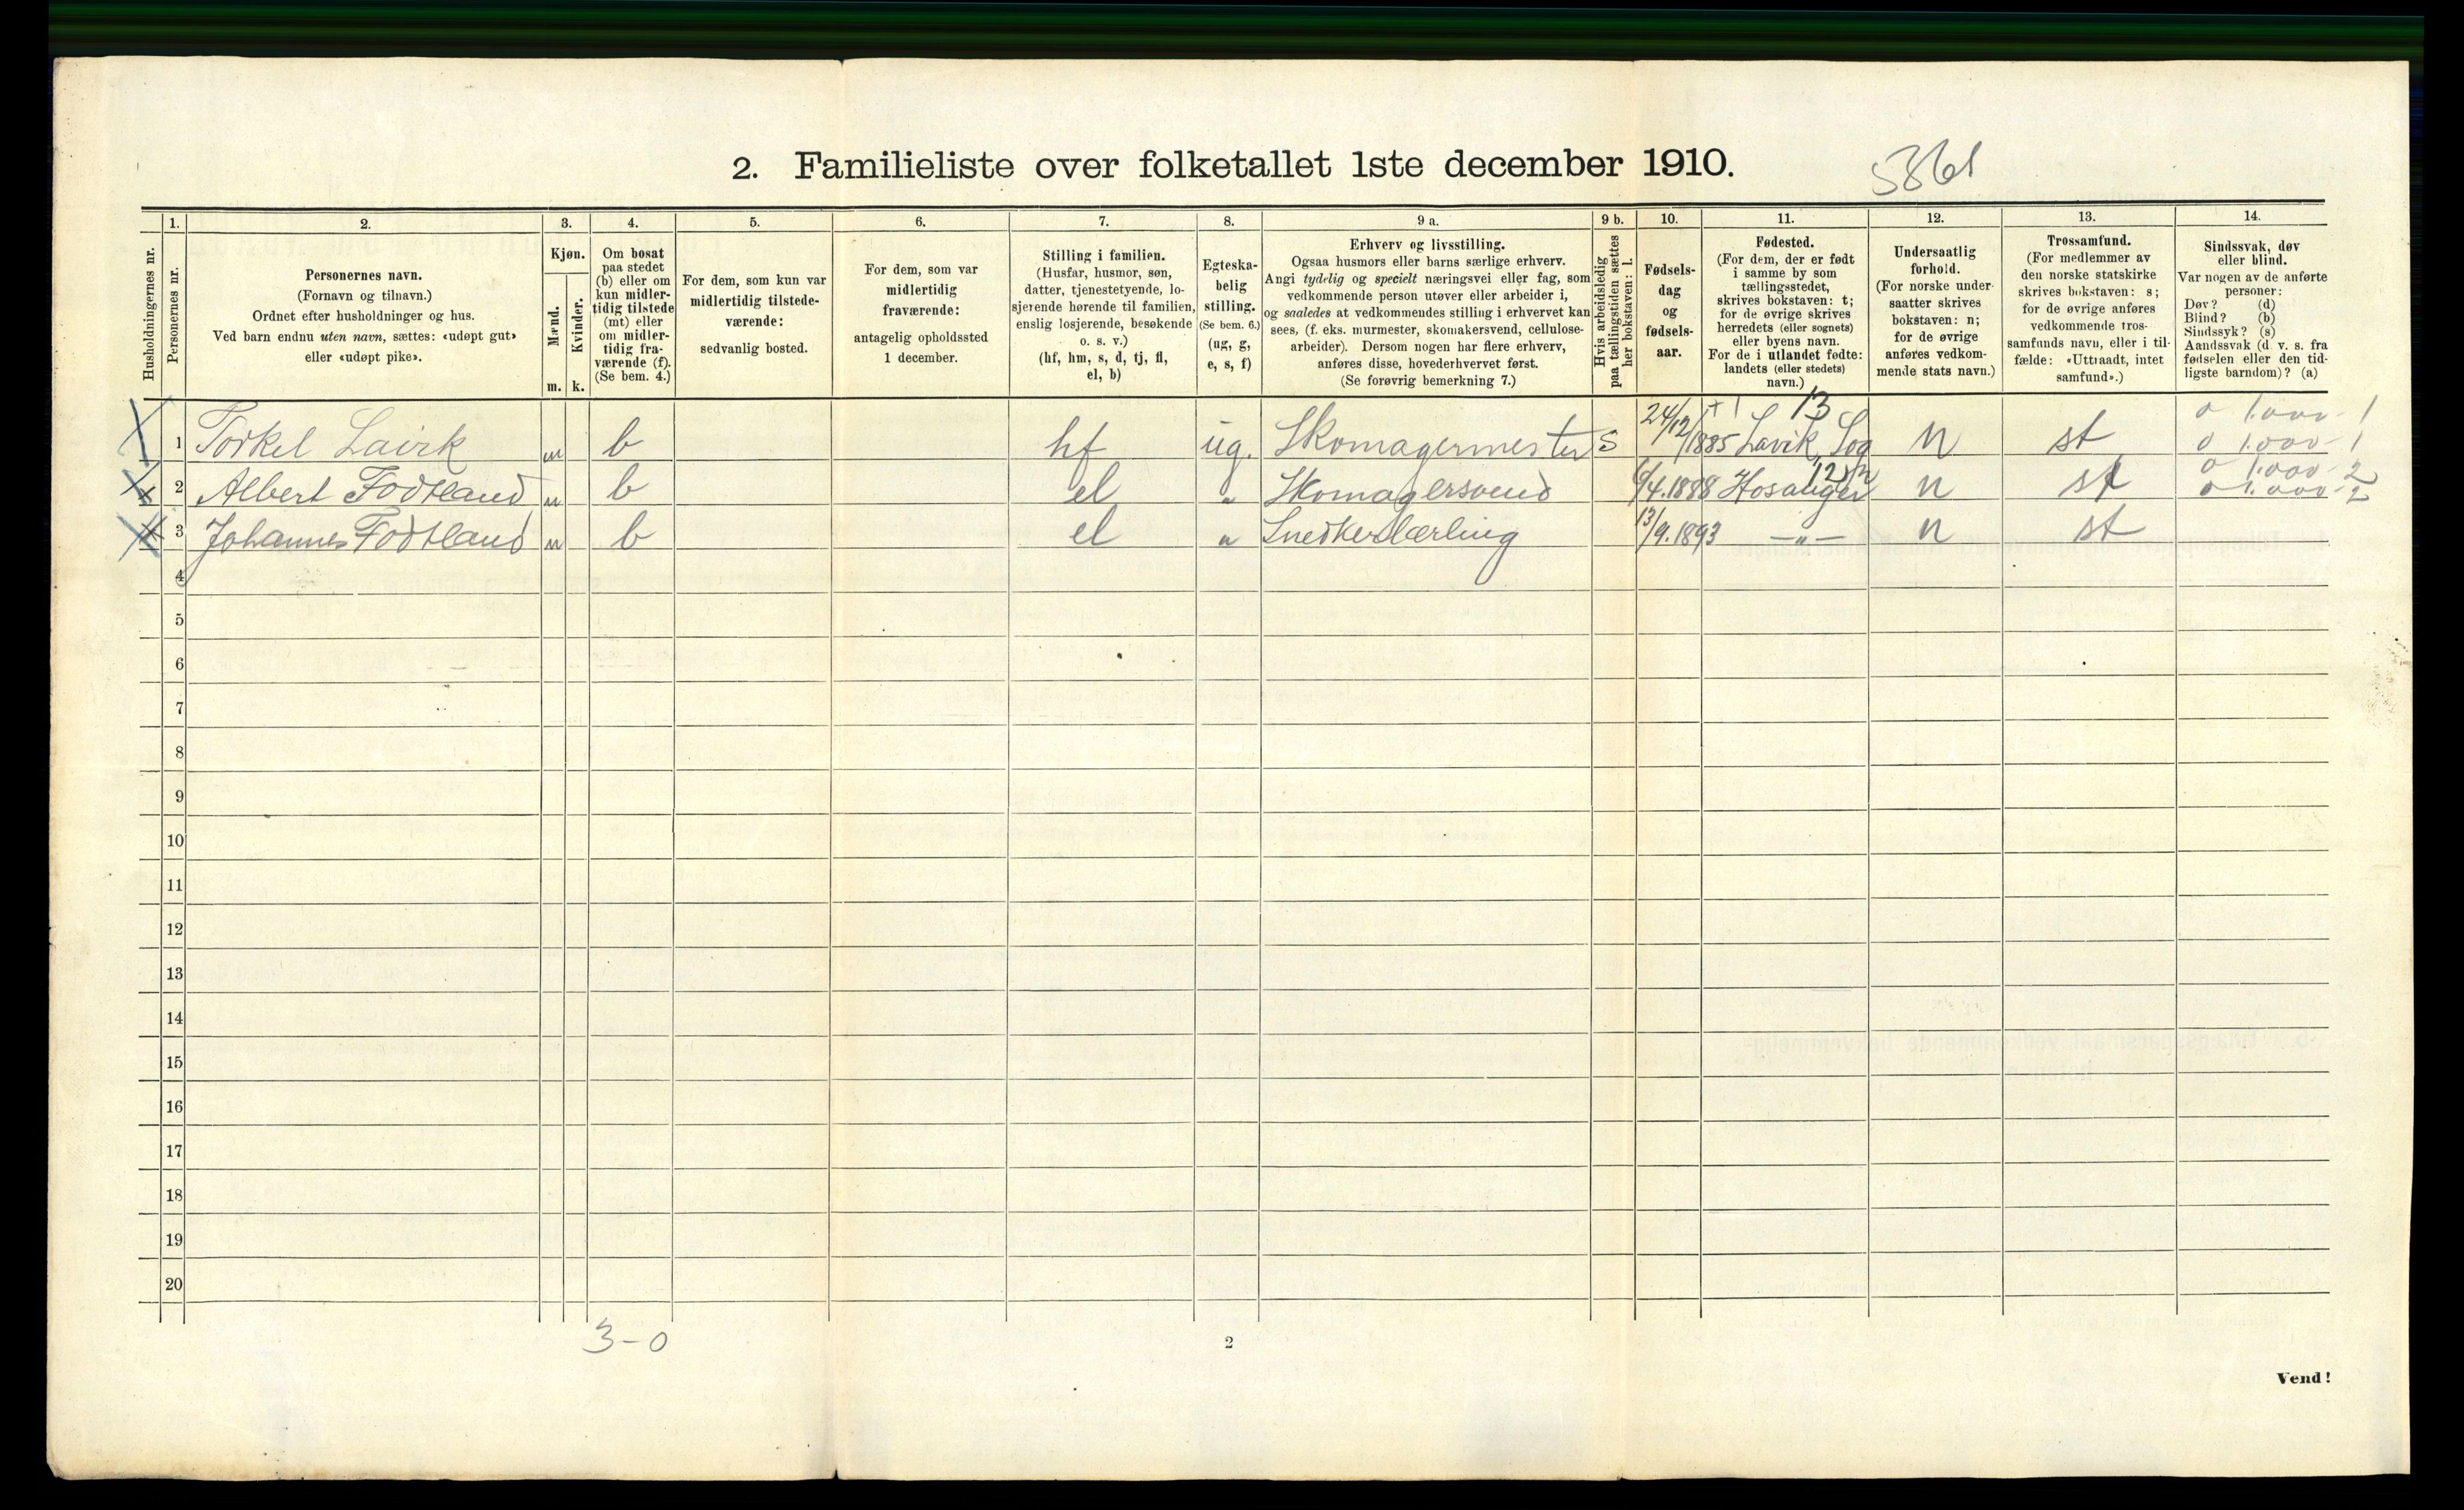 2. Familieliste over folketallet 1ste december 1910.
1. 2. 3. 4. 5. 6. 7. 8. 9 a. 9 b. 10. 11. 12. 13. 14.
Husholdningernes nr.
Personernes nr.
Personernes navn.
(Fornavn og tilnavn.)
Ordnet efter husholdninger og hus.
Ved barn endnu uten navn, sættes: «udøpt gut»
eller «udøpt pike».
Kjøn.
Mænd.
Kvinder.
m. k.
Om bosat
paa stedet
(b) eller om
kun midler-
tidig tilstede
(mt) eller
om midler-
tidig fra-
værende (f).
(Se bem. 4.)
For dem, som kun var
midlertidig tilstede-
værende:
sedvanlig bosted.
For dem, som var
midlertidig
fraværende:
antagelig opholdssted
1 december.
Stilling i familien.
(Husfar, husmor, søn,
datter, tjenestetyende, lo-
sjerende hørende til familien,
enslig losjerende, besøkende
o. s. v.)
(hf, hm, s, d, tj, fl,
el, b)
Egteska-
belig
stilling.
(Se bem. 6.)
(ug, g,
e, s, f)
Erhverv og livsstilling.
Ogsaa husmors eller barns særlige erhverv.
Angi tydelig og specielt næringsvei eller fag, som
vedkommende person utøver eller arbeider i,
og saaledes at vedkommendes stilling i erhvervet kan
sees, (f. eks. murmester, skomakersvend, cellulose-
arbeider). Dersom nogen har flere erhverv,
anføres disse, hovederhvervet først.
(Se forøvrig bemerkning 7.)
Hvis arbeidsledig
paa tællingstiden sættes
her bokstaven: l.
Fødsels-
dag
og
fødsels-
aar.
Fødested.
(For dem, der er født
i samme by som
tællingsstedet,
skrives bokstaven: t;
for de øvrige skrives
herredets (eller sognets)
eller byens navn.
For de i utlandet fødte:
landets (eller stedets)
navn.)
Undersaatlig
forhold.
(For norske under-
saatter skrives
bokstaven: n;
for de øvrige
anføres vedkom-
mende stats navn.)
Trossamfund.
(For medlemmer av
den norske statskirke
skrives bokstaven: s;
for de øvrige anføres
vedkommende tros-
samfunds navn, eller i til-
fælde: «Uttraadt, intet
samfund».)
Sindssvak, døv
eller blind.
Var nogen av de anførte
personer:
Døv? (d)
Blind? (b)
Sindssyk? (s)
Aandssvak (d. v. s. fra
fødselen eller den tid-
ligste barndom)? (a)
13 0 1.000-1
1 Torkel Lavik m b hf ug. Skomagermester S 24/12/1885 Lavik, Sog n st 0 1.000-1
12 0 1.000-2
2 Albert Fodtland m b el " Skomagersvend 6/4.1888 Hosanger n st 0 1.000-2
3 Johannes Fodtland m b el " Snedkerlærling 13/9.1893 —"— n st
4
5
6
7
8
9
10
11
12
13
14
15
16
17
18
19
20
3-0
2
Vend!